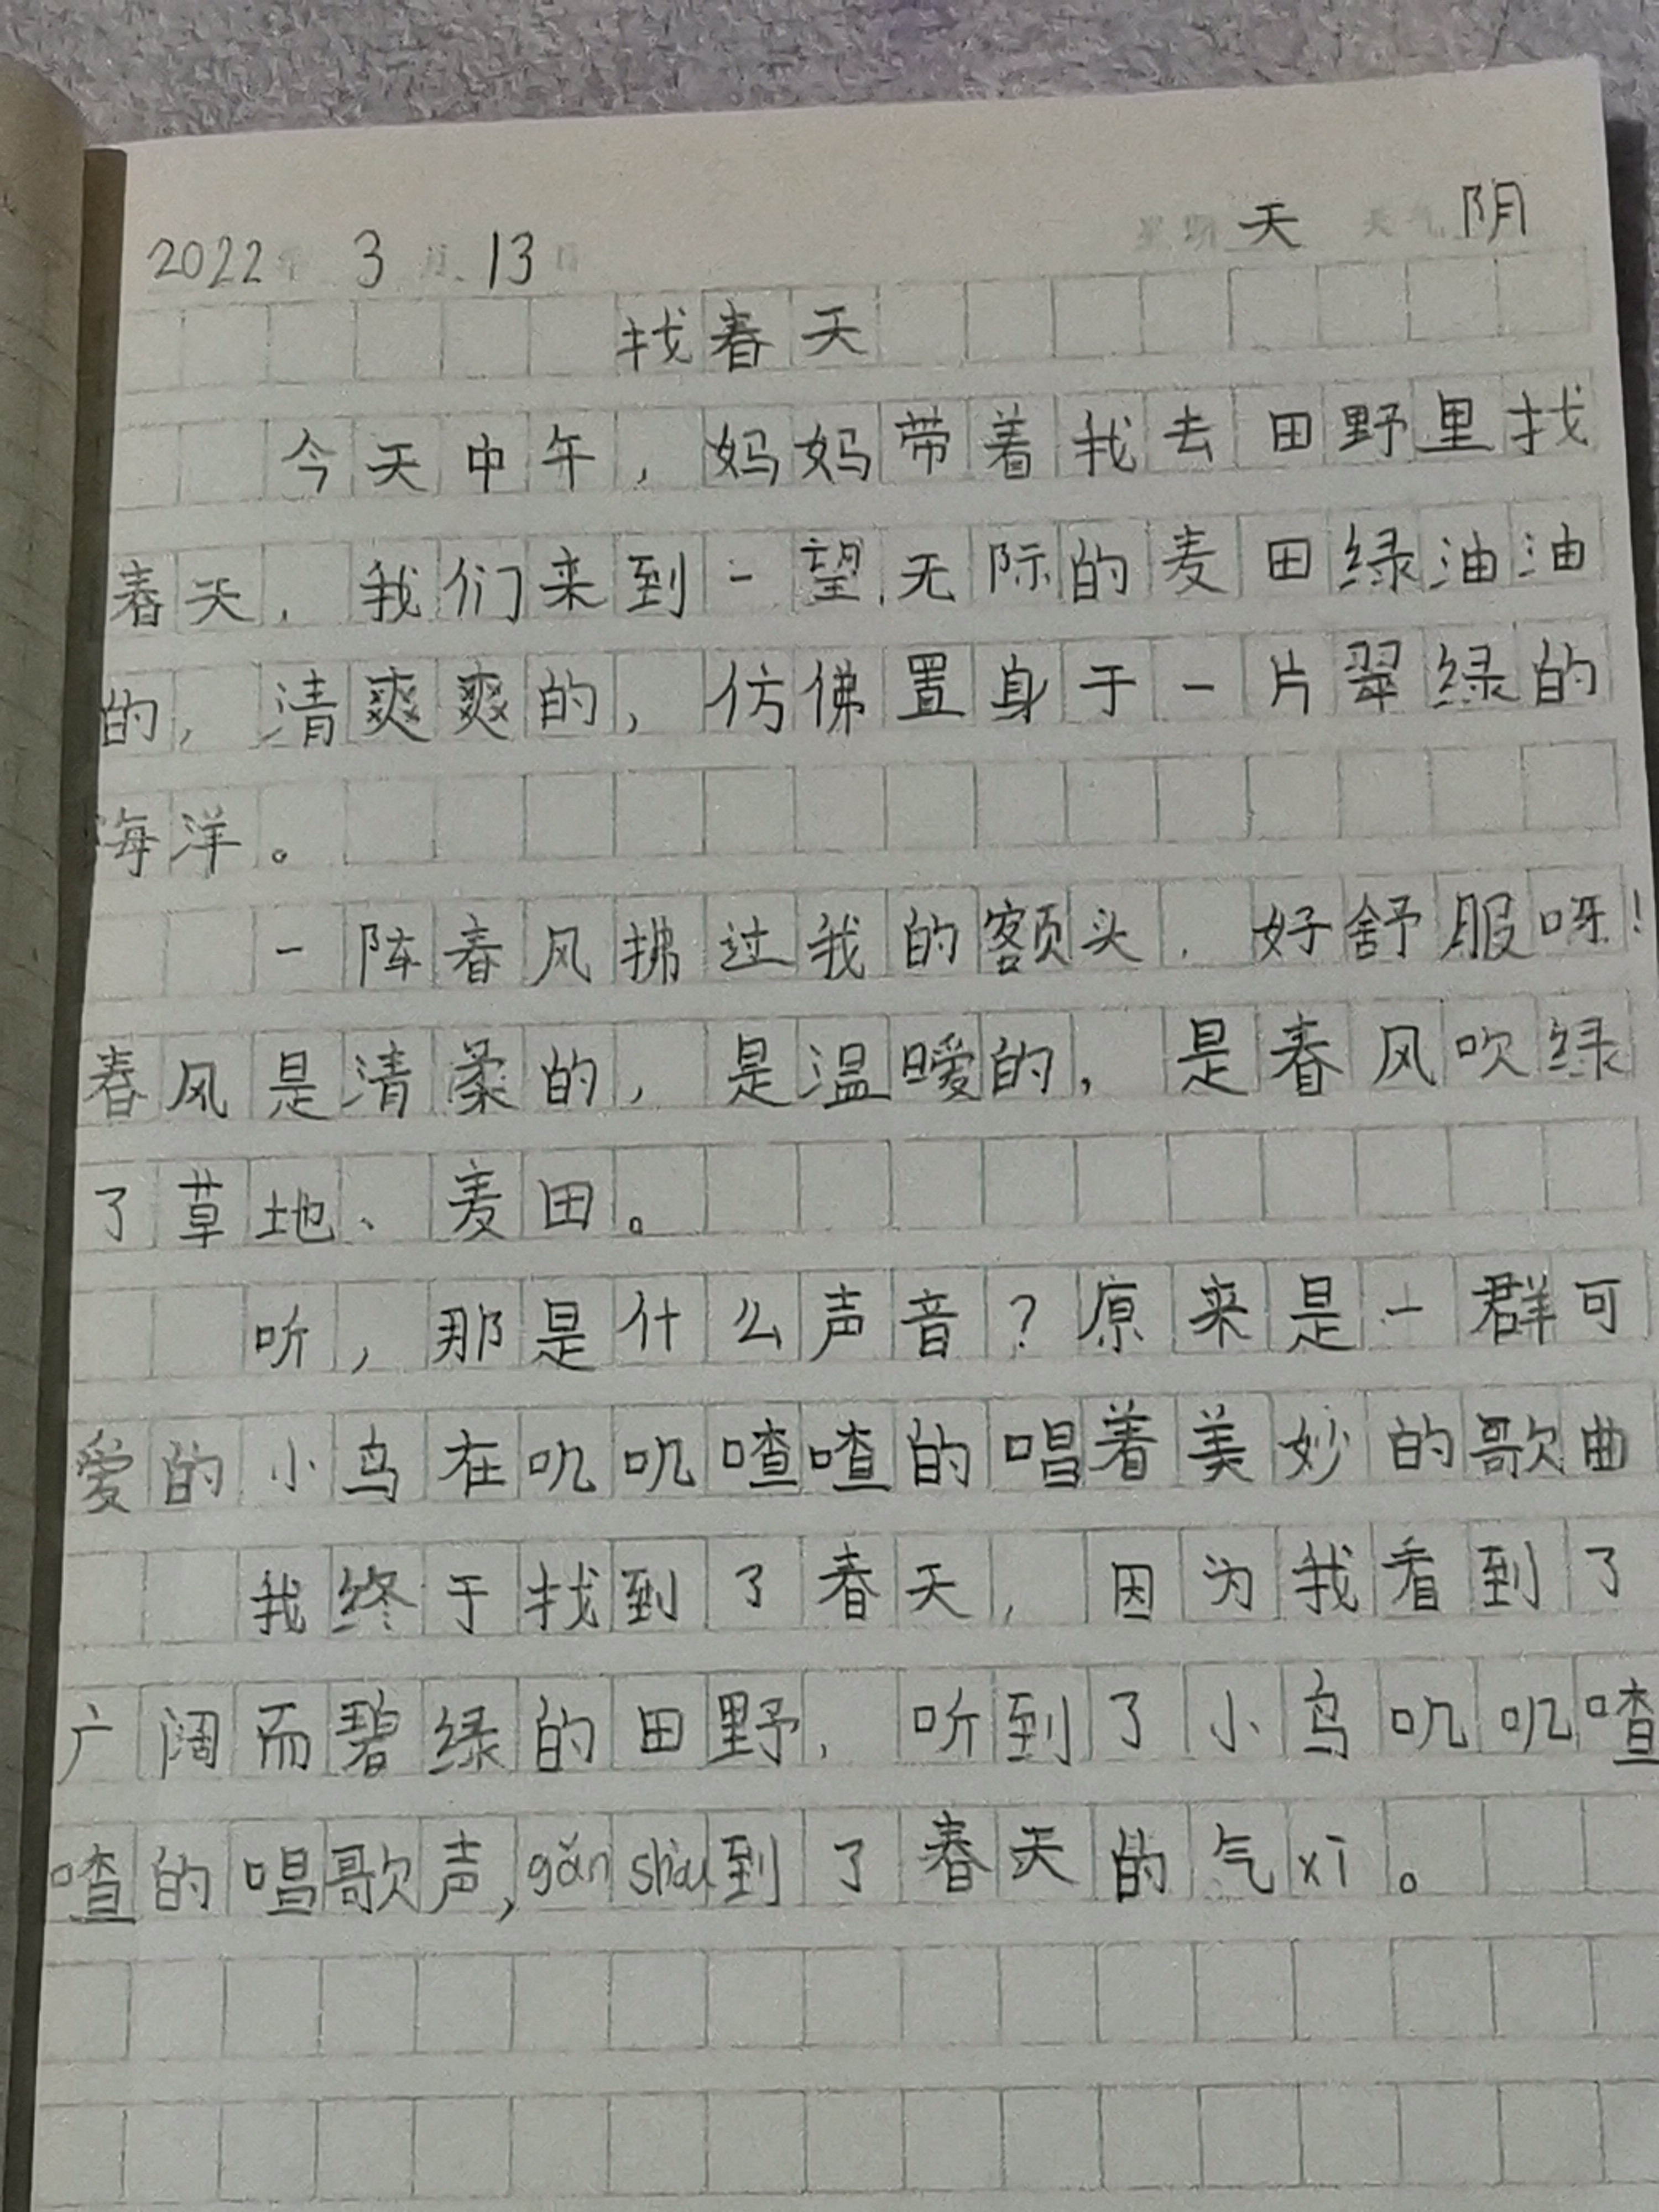 2022年 3月 13日 星期 天 天气 阴
找春天
今天中午，妈妈带着我去田野里找
春天，我们来到一望无际的麦田绿油油
的，清爽爽的，仿佛置身于一片翠绿的
海洋。
一阵春风拂过我的额头，好舒服呀！
春风是清柔的，是温暖的，是春风吹绿
了草地、麦田。
听，那是什么声音？原来是一群可
爱的小鸟在叽叽喳喳的唱着美妙的歌曲
我终于找到了春天，因为我看到了
广阔而碧绿的田野，听到了小鸟叽叽喳
喳的唱歌声，gǎn shòu到了春天的气xī。